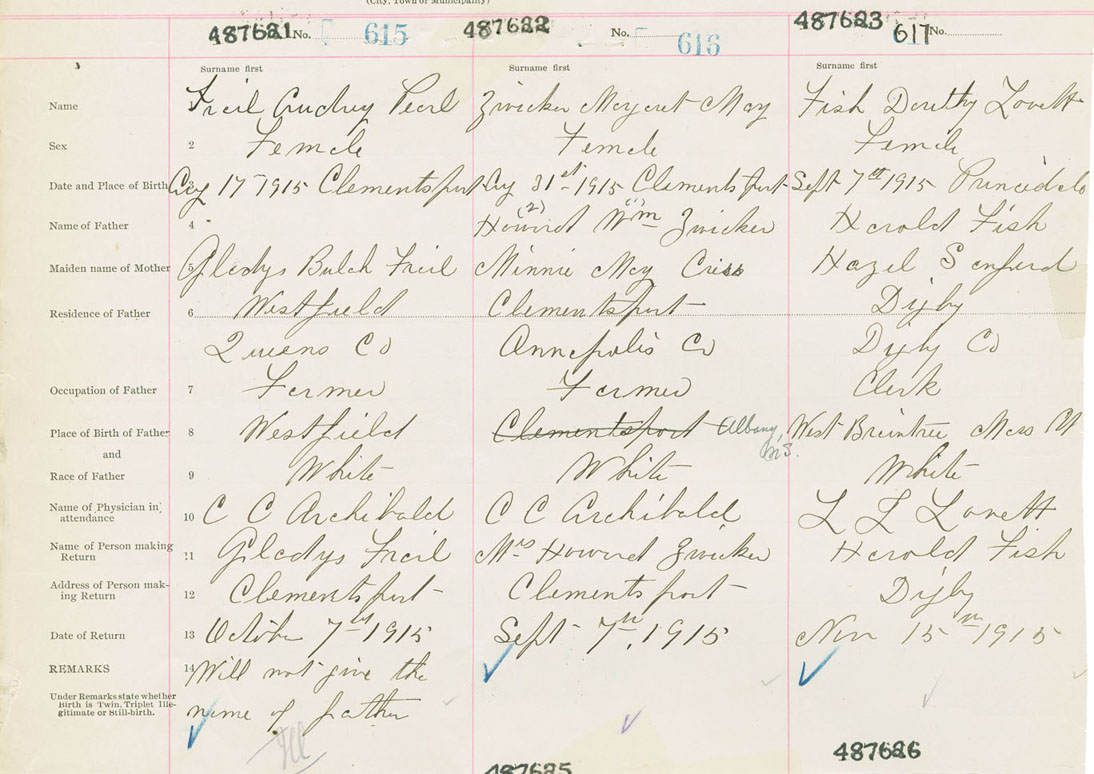 (City, Town or Municipality)
487621 No. 615 487622 No. 616 487623 617 No.
Surname first Surname first Surname first
Name Freil Audrey Pearl Zwicker Margaret May Fish Dorothy Lovett
Sex 2 Female Female Female
Date and Place of Birth 3 Aug 17 1915 Clementsport Aug 31st 1915 Clementsport Sept 7th 1915 Princedale
Name of Father 4 Howard (2) Wm (1) Zwicker Harold Fish
Maiden name of Mother 5 Gladys Freil Minnie May Harold Sanford
Residence of Father 6 Westfield Clementsport Digby
Queens Co Annapolis Co Digby Co
Occupation of Father 7 Farmer Farmer Clerk
Place of Birth of Father 8 Westfield Clementsport Albany, N.S. West Braintree Mass
and
Race of Father 9 White White White
Name of Physician in attendance 10 C C Archibald C C Archibald Lovett
Name of Person making Return 11 Gladys Freil Mrs Howard Zwicker Harold Fish
Address of Person making Return 12 Clementsport Clementsport Digby
Date of Return 13 October 7th 1915 Sept 7th, 1915 Nov 15th 1915
REMARKS 14 Will not give the
Under Remarks state whether Birth is Twin, Triplet Illegitimate or Still-birth. name of father
Ill
487625 487626